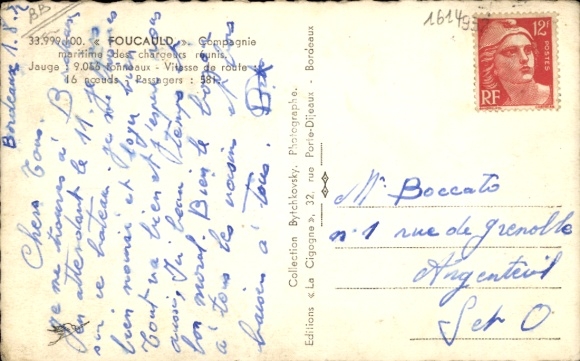 Bordeaux 1.8.
BB
33.999 00. « FOUCAULD ». Compagnie
maritime des chargeurs réunis.
Jauge : 9.046 tonneaux - Vitesse de route :
16 nœuds - Passagers : 581.
Chers Tous
Je me trouve à Bordeaux
en attendant le 11. Je
sur ce bateau. Je me sommes
bien nourri et logé
Tout va bien et j'espère vous
aussi, Ici beau temps et
bon moral. Bien le bonjour
à tous les voisins et gros
baisers à Tous.
Collection Bytchkovsky, Photographe.
Editions « La Cigogne », 32, rue Porte-Dijeaux - Bordeaux
1614
12F
POSTES
RF
Mr Boccato
n°1 rue de Grenoble
Argenteuil
S et O